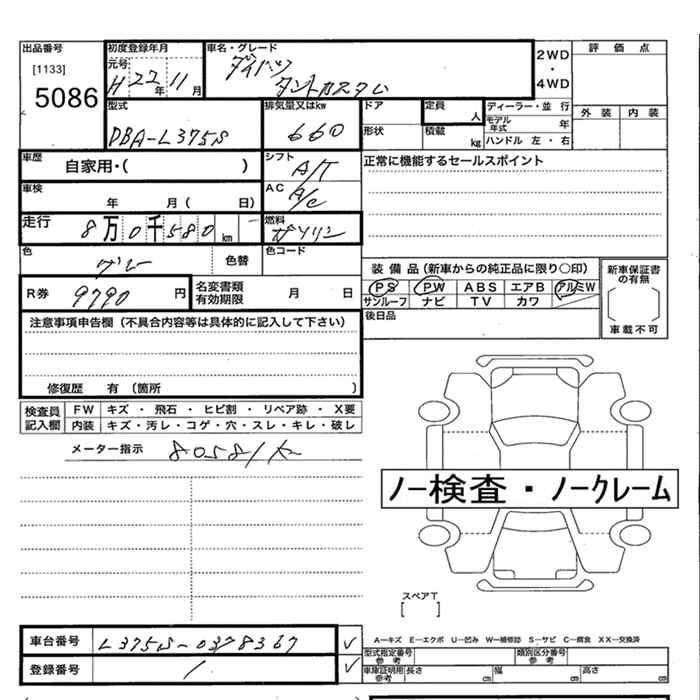 出品番号 初度登録年月 車名・グレード 2WD 評価点
[1133] 元号 H 22年 11月 ダイハツ ・
5086 タントカスタム 4WD
型式 排気量又はkw ドア 定員 人 ディーラー・並行 外装 内装
DBA-L375S 660 形状 積載 kg モデル年式 年
ハンドル 左・右
車歴 自家用・( ) シフト A/T 正常に機能するセールスポイント
車検 年 月 ( 日) AC A/C
走行 8万0千580km 燃料 ガソリン
色 グレー 色替 色コード
装備品(新車からの純正品に限り○印) 新車保証書の有無
R券 9790円 名変書類有効期限 月 日 PS PW ABS エアB アルミW
サンルーフ ナビ TV カワ 車載不可
注意事項申告欄(不具合内容等は具体的に記入して下さい) 後日品
修復歴 有 (箇所 )
検査員記入欄 FW キズ・飛石・ヒビ割・リペア跡・X要
内装 キズ・汚レ・コゲ・穴・スレ・キレ・破レ
メーター指示 80581K
ノー検査・ノークレーム
スペアT
[ ]
車台番号 L375S-0378367 ✓ A―キズ E―エクボ U―凹み W―補修跡 S―サビ C―腐食 XX―交換済
型式指定番号 参考 類別区分番号 参考
登録番号 / ✓ 車庫証明用 参考 長さ cm 幅 cm 高さ cm